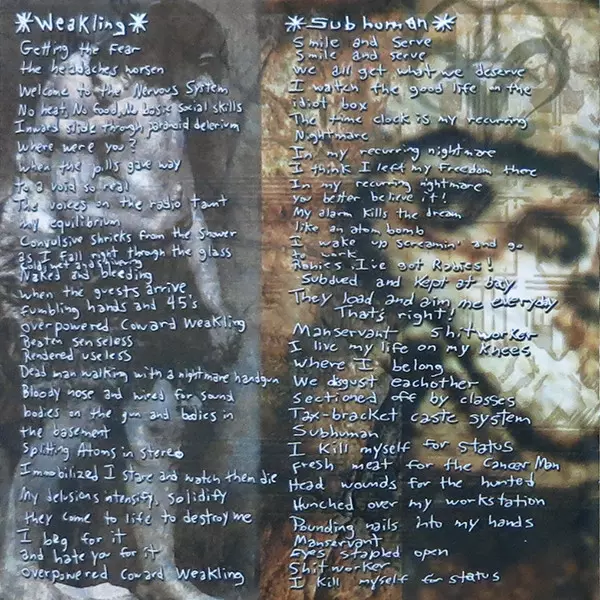 *Weakling*
Getting the fear
the headaches worsen
Welcome to the Nervous System
No heat, No food, No basic social skills
Inward slide through paranoid delerium
Where were you?
when the pills gave way
to a void so real
The voices on the radio taunt
my equilibrium
Convulsive shrieks from the shower
as I fall right through the glass
Cold, wet and shivering
Naked and bleeding
when the guests arrive
fumbling hands and 45's
overpowered Coward Weakling
Beaten senseless
Rendered useless
Dead man walking with a nightmare handgun
Bloody nose and wired for sound
bodies on the gun and bodies in
the basement
Splitting Atoms in Stereo
Immobilized I stare and watch them die
My delusions intensify, Solidify
they come to life to destroy me
I beg for it
and hate you for it
overpowered Coward Weakling
*Subhuman*
Smile and Serve
Smile and serve
We all get what we deserve
I watch the good life on the
idiot box
The time clock is my recurring
Nightmare
In my recurring nightmare
I think I left my Freedom there
In my recurring nightmare
you better believe it!
My alarm kills the dream
like an atom bomb
I wake up screamin' and go
to work
Rabies, I've got Rabies!
Subdued and Kept at bay
They load and aim me everyday
That's right!
Manservant Shitworker
I live my life on my knees
where I belong
We disgust eachother
sectioned off by classes
Tax-bracket caste system
Subhuman
I Kill myself for status
Fresh meat for the Cancer Man
Head wounds for the hunted
Hunched over my workstation
Pounding nails into my hands
Manservant
Eyes stapled open
Shitworker
I Kill myself for status